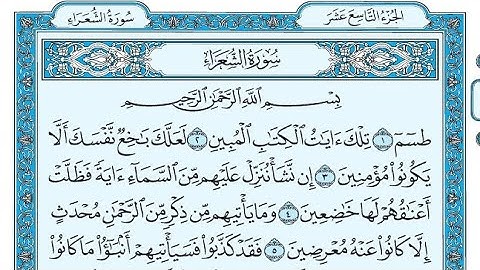 سُورَةُ الشُّعَرَاءِ
الجُزْءُ التَّاسِعَ عَشَرَ
سُورَةُ الشُّعَرَاءِ
بِسْمِ ٱللَّهِ ٱلرَّحْمَٰنِ ٱلرَّحِيمِ
طسٓمٓ ١ تِلْكَ ءَايَٰتُ ٱلْكِتَٰبِ ٱلْمُبِينِ ٢ لَعَلَّكَ بَٰخِعٌ نَّفْسَكَ أَلَّا
يَكُونُوا۟ مُؤْمِنِينَ ٣ إِن نَّشَأْ نُنَزِّلْ عَلَيْهِم مِّنَ ٱلسَّمَآءِ ءَايَةً فَظَلَّتْ
أَعْنَٰقُهُمْ لَهَا خَٰضِعِينَ ٤ وَمَا يَأْتِيهِم مِّن ذِكْرٍ مِّنَ ٱلرَّحْمَٰنِ مُحْدَثٍ
إِلَّا كَانُوا۟ عَنْهُ مُعْرِضِينَ ٥ فَقَدْ كَذَّبُوا۟ فَسَيَأْتِيهِمْ أَنۢبَٰٓؤُا۟ مَا كَانُوا۟